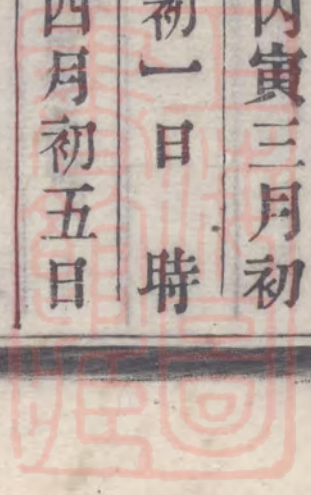 丙寅三月初
初一日 時
四月初五日